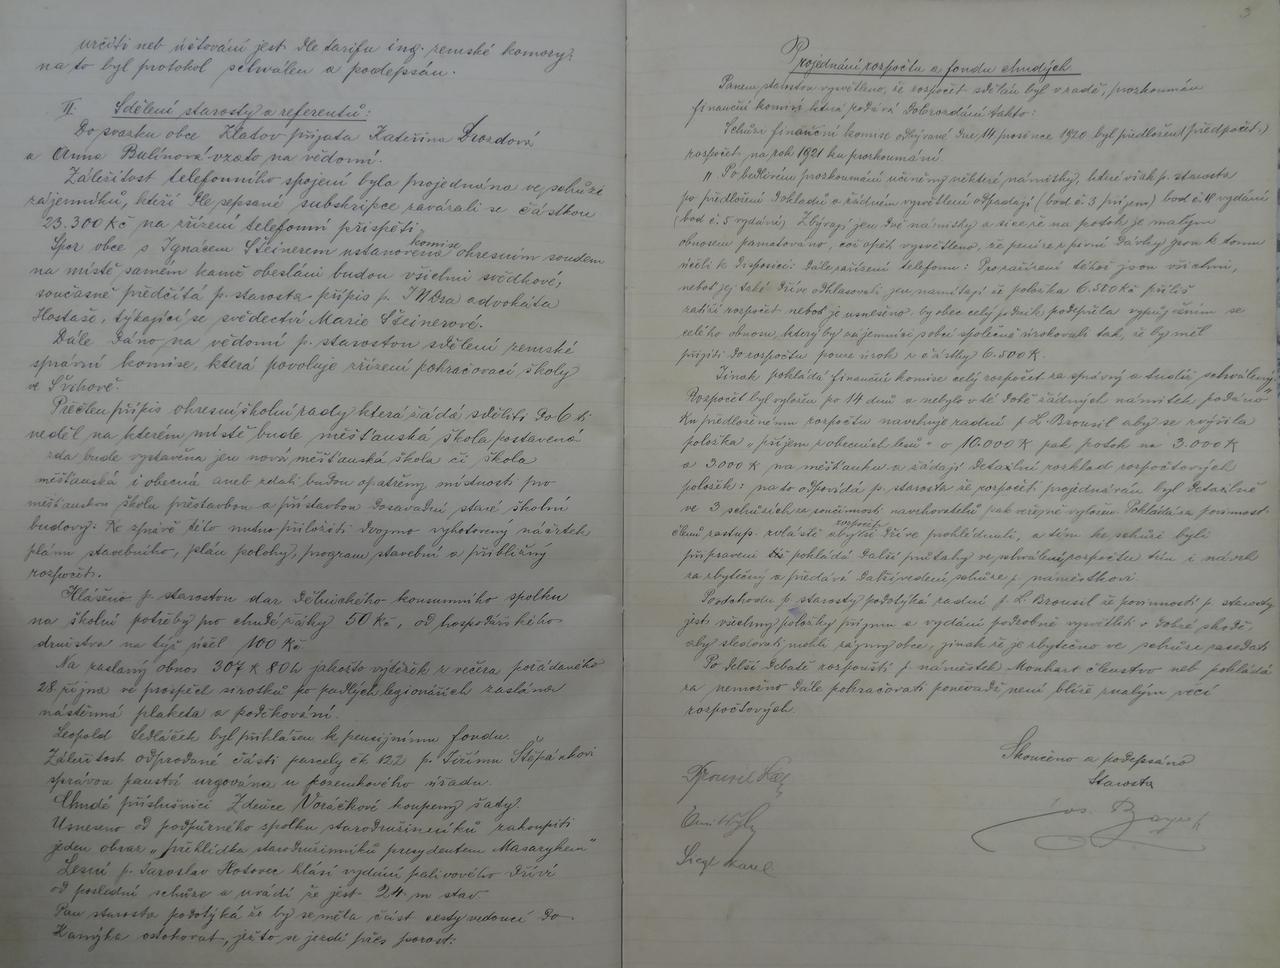 určiti neb účtování jest dle tarifu ing. zemské komory?
na to byl protokol schválen a podepssán.
II. Sdělení starosty a referentů:
Do svazku obce Zlatov přijata Kateřina Drozdová
a Anna Bulínová vzato na vědomí.
Záležitost telefonního spojení byla projednána ve schůzi
zájemníků, kteří dle sepsané subskripce zavázali se částkou
23.300 Kč na zřízení telefonní přispěti.
Spor obce s Ignácem Šteinerem ustanovena komise okresním soudem
na místě samém kamž obesláni budou všichni svědkové,
současně předčítá p. starosta přípis p. JUDra advokáta
Hostaše, týkající se svědectví Marie Šteinerové.
Dále dáno na vědomí p. starostou sdělení zemské
správní komise, která povoluje zřízení pokračovací školy
ve
Přečten přípis okresní školní rady která žádá sděliti do 6 ti
neděl na kterém místě bude měšťanská škola postavena
zda bude vystavěna jen nová měšťanská škola či škola
měšťanská i obecná aneb zdali budou opatřeny místnosti pro
měšťanskou školu přestavbou a přístavbou dosavadní staré školní
budovy. Ke zprávě této nutno přiložiti dvojmo vyhotovený náčrtek
plánu stavebního, plán polohy, program stavební a přibližný
rozpočet.
Hlášeno p. starostou dar dělnického konsumního spolku
na školní potřeby pro chudé žáky 50 Kč, od hospodářského
družstva na týž účel 100 Kč
Na zaslaný obnos 307 K 80 h jakožto výtěžek z večera pořádaného
28. října ve prospěch sirotků po padlých legionářích zaslána
nástěnná plaketa a poděkování.
Leopold Sedláček byl přihlášen k pensijnímu fondu.
Záležitost odprodané části parcely čk 122 p. Jiřímu Štěpánkovi
správou panství urgována u pozemkového úřadu.
Chudé příslušnici Zdeňce Voráčkové koupeny šaty.
Usneseno od podpůrného spolku starodružiníků zakoupiti
jeden obraz „přehlídka starodružinníků presydentem Masarykem"
Lesní p. Jaroslav Hotovec hlásí vydání palivového dříví
od poslední schůze a uvádí že jest 24 m stav.
Pan starosta podotýká že by se měla část cesty vedoucí do
Kamýka oštokovat, ježto se jezdí přes porost:
3
Projednání rozpočtu a fondu chudých
Panem starostou vysvětleno, že rozpočet sdělán byl v radě, prozkoumán
finanční komisí která podává dobrozdání takto:
Schůze finanční komise odbývané dne 14 prosence 1920 byl předložen (předpočet)
rozpočet na rok 1921 ku prozkoumání.
„ Po bedlivém prozkoumání učiněny některé námitky, které však p. starosta
po předložení dokladů a řádném vysvětlení odpadají (bod č 3 příjem) bod č. 18 vydání
(bod č. 5 vydání) Zbývají jen dvě námitky a sice že na potok je malým
obnosem pamatováno, což opět vysvětleno, že peníze z pivní dávky jsou k tomu
účeli k disposici: Dále zařízení telefonu: Pro zařízení téhož jsou všichni,
neboť jej také dříve odhlasovali jen namítají že položka 6.500 Kč příliš
zatíží rozpočet neboť je usneseno by obec celý podnik podepřela vypůjčením se
celého obnosu, který by zájemníci sobci společně úrokovali tak, že by měl
přijíti do rozpočtu pouze úrok z částky 6.500 K.
Jinak pokládá finanční komise celý rozpočet za správný a tudíž schválený."
Rozpočet byl vyložen po 14 dnů a nebylo v té době žádných námitek podáno
Ku předloženému rozpočtu navrhuje radní p L. Brousil aby se zvýšila
položka „ příjem z obecních lesů" o 10.000 K pak potok na 3.000 K
a 3000 K na měšťanku a žádají detailní rozklad rozpočtových
položek: na to odpovídá p. starosta že rozpočet projednáván byl detailně
ve 3 schůzích za součinnosti navrhovatelů pak veřejně vyložen. Pokládá za povinnost
členů zastup. zvláště abyste rozpočet dříve prohlédnuli, a tím ke schůzi byli
připraveni pokládá další průtahy ve schválení rozpočtu tím i návrh
za zbytečný a předává další vedení schůze p. náměstkovi.
Po odchodu p. starosty podotýká radní p L. Brousil že povinností p. starosty
jest všechny položky příjmu a vydání podrobně vysvětliti v dobré shodě,
aby sledovati mohli zájmy obce, jinak že je zbytečno ve schůzi zasedati
Po delší debatě rozpouští p náměstek Monhart členstvo neb pokládá
za nemožno dále pokračovati poněvadž není blíže znalým věcí
rozpočtových.
Skončeno a podepssáno
Starosta
Brousil
Siegl Karel